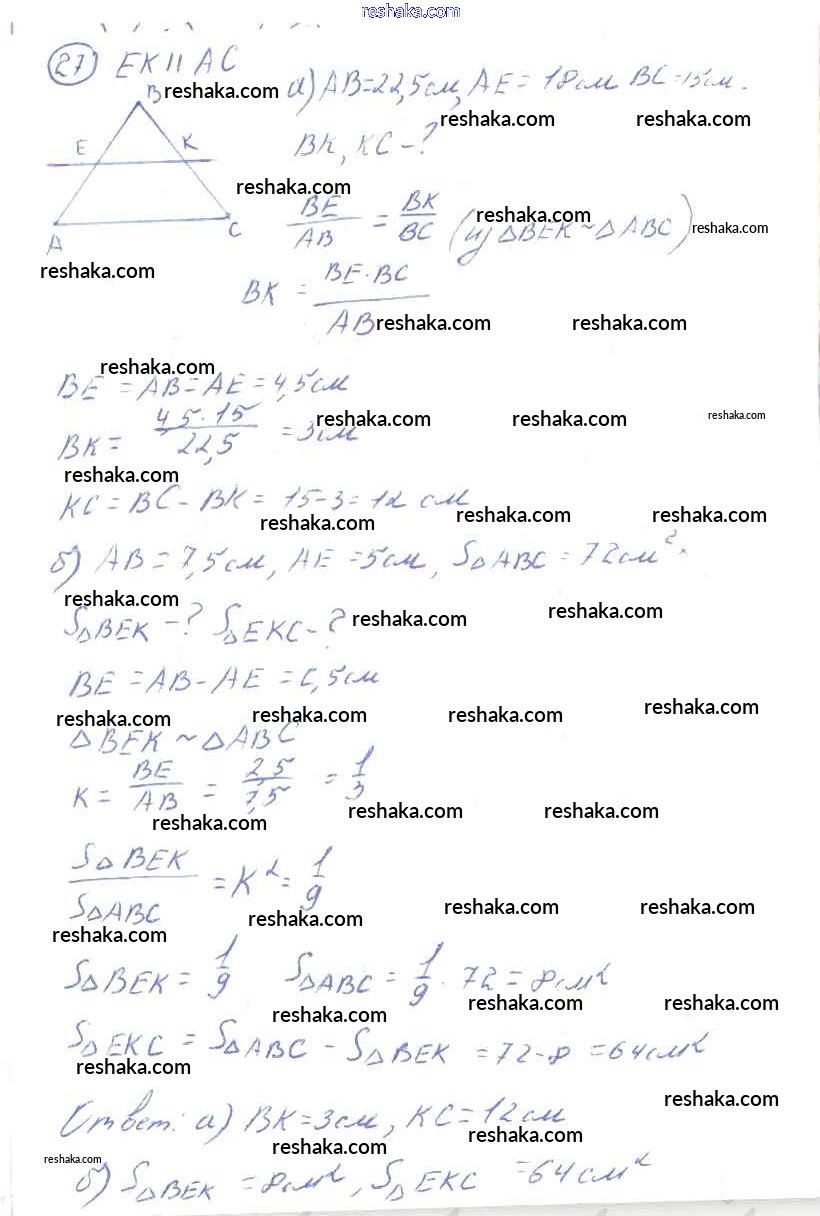 reshaka.com
27 EK || AC
а) AB = 22,5 см, AE = 18 см BC = 15 см.
B reshaka.com
reshaka.com reshaka.com
E K
BK, KC - ?
reshaka.com
BE/AB = BK/BC (из △BEK ~ △ABC)
reshaka.com reshaka.com
A C
reshaka.com
BK = BE · BC / AB
reshaka.com reshaka.com
reshaka.com
BE = AB = AE = 4,5 см
BK = 4,5 · 15 / 22,5 = 3 см
reshaka.com reshaka.com reshaka.com
reshaka.com
KC = BC - BK = 15 - 3 = 12 см
reshaka.com reshaka.com reshaka.com
б) AB = 7,5 см, AE = 5 см, S△ABC = 72 см².
reshaka.com reshaka.com
S△BEK - ? S△EKC - ?
reshaka.com
BE = AB - AE = 2,5 см
reshaka.com reshaka.com reshaka.com reshaka.com
△BEK ~ △ABC
K = BE/AB = 2,5/7,5 = 1/3
reshaka.com reshaka.com reshaka.com
S△BEK / S△ABC = K² = 1/9
reshaka.com reshaka.com reshaka.com reshaka.com
S△BEK = 1/9 S△ABC = 1/9 · 72 = 8 см²
reshaka.com reshaka.com reshaka.com
S△EKC = S△ABC - S△BEK = 72 - 8 = 64 см²
reshaka.com
reshaka.com
Ответ: а) BK = 3 см, KC = 12 см
reshaka.com reshaka.com
reshaka.com
б) S△BEK = 8 см², S△EKC = 64 см²